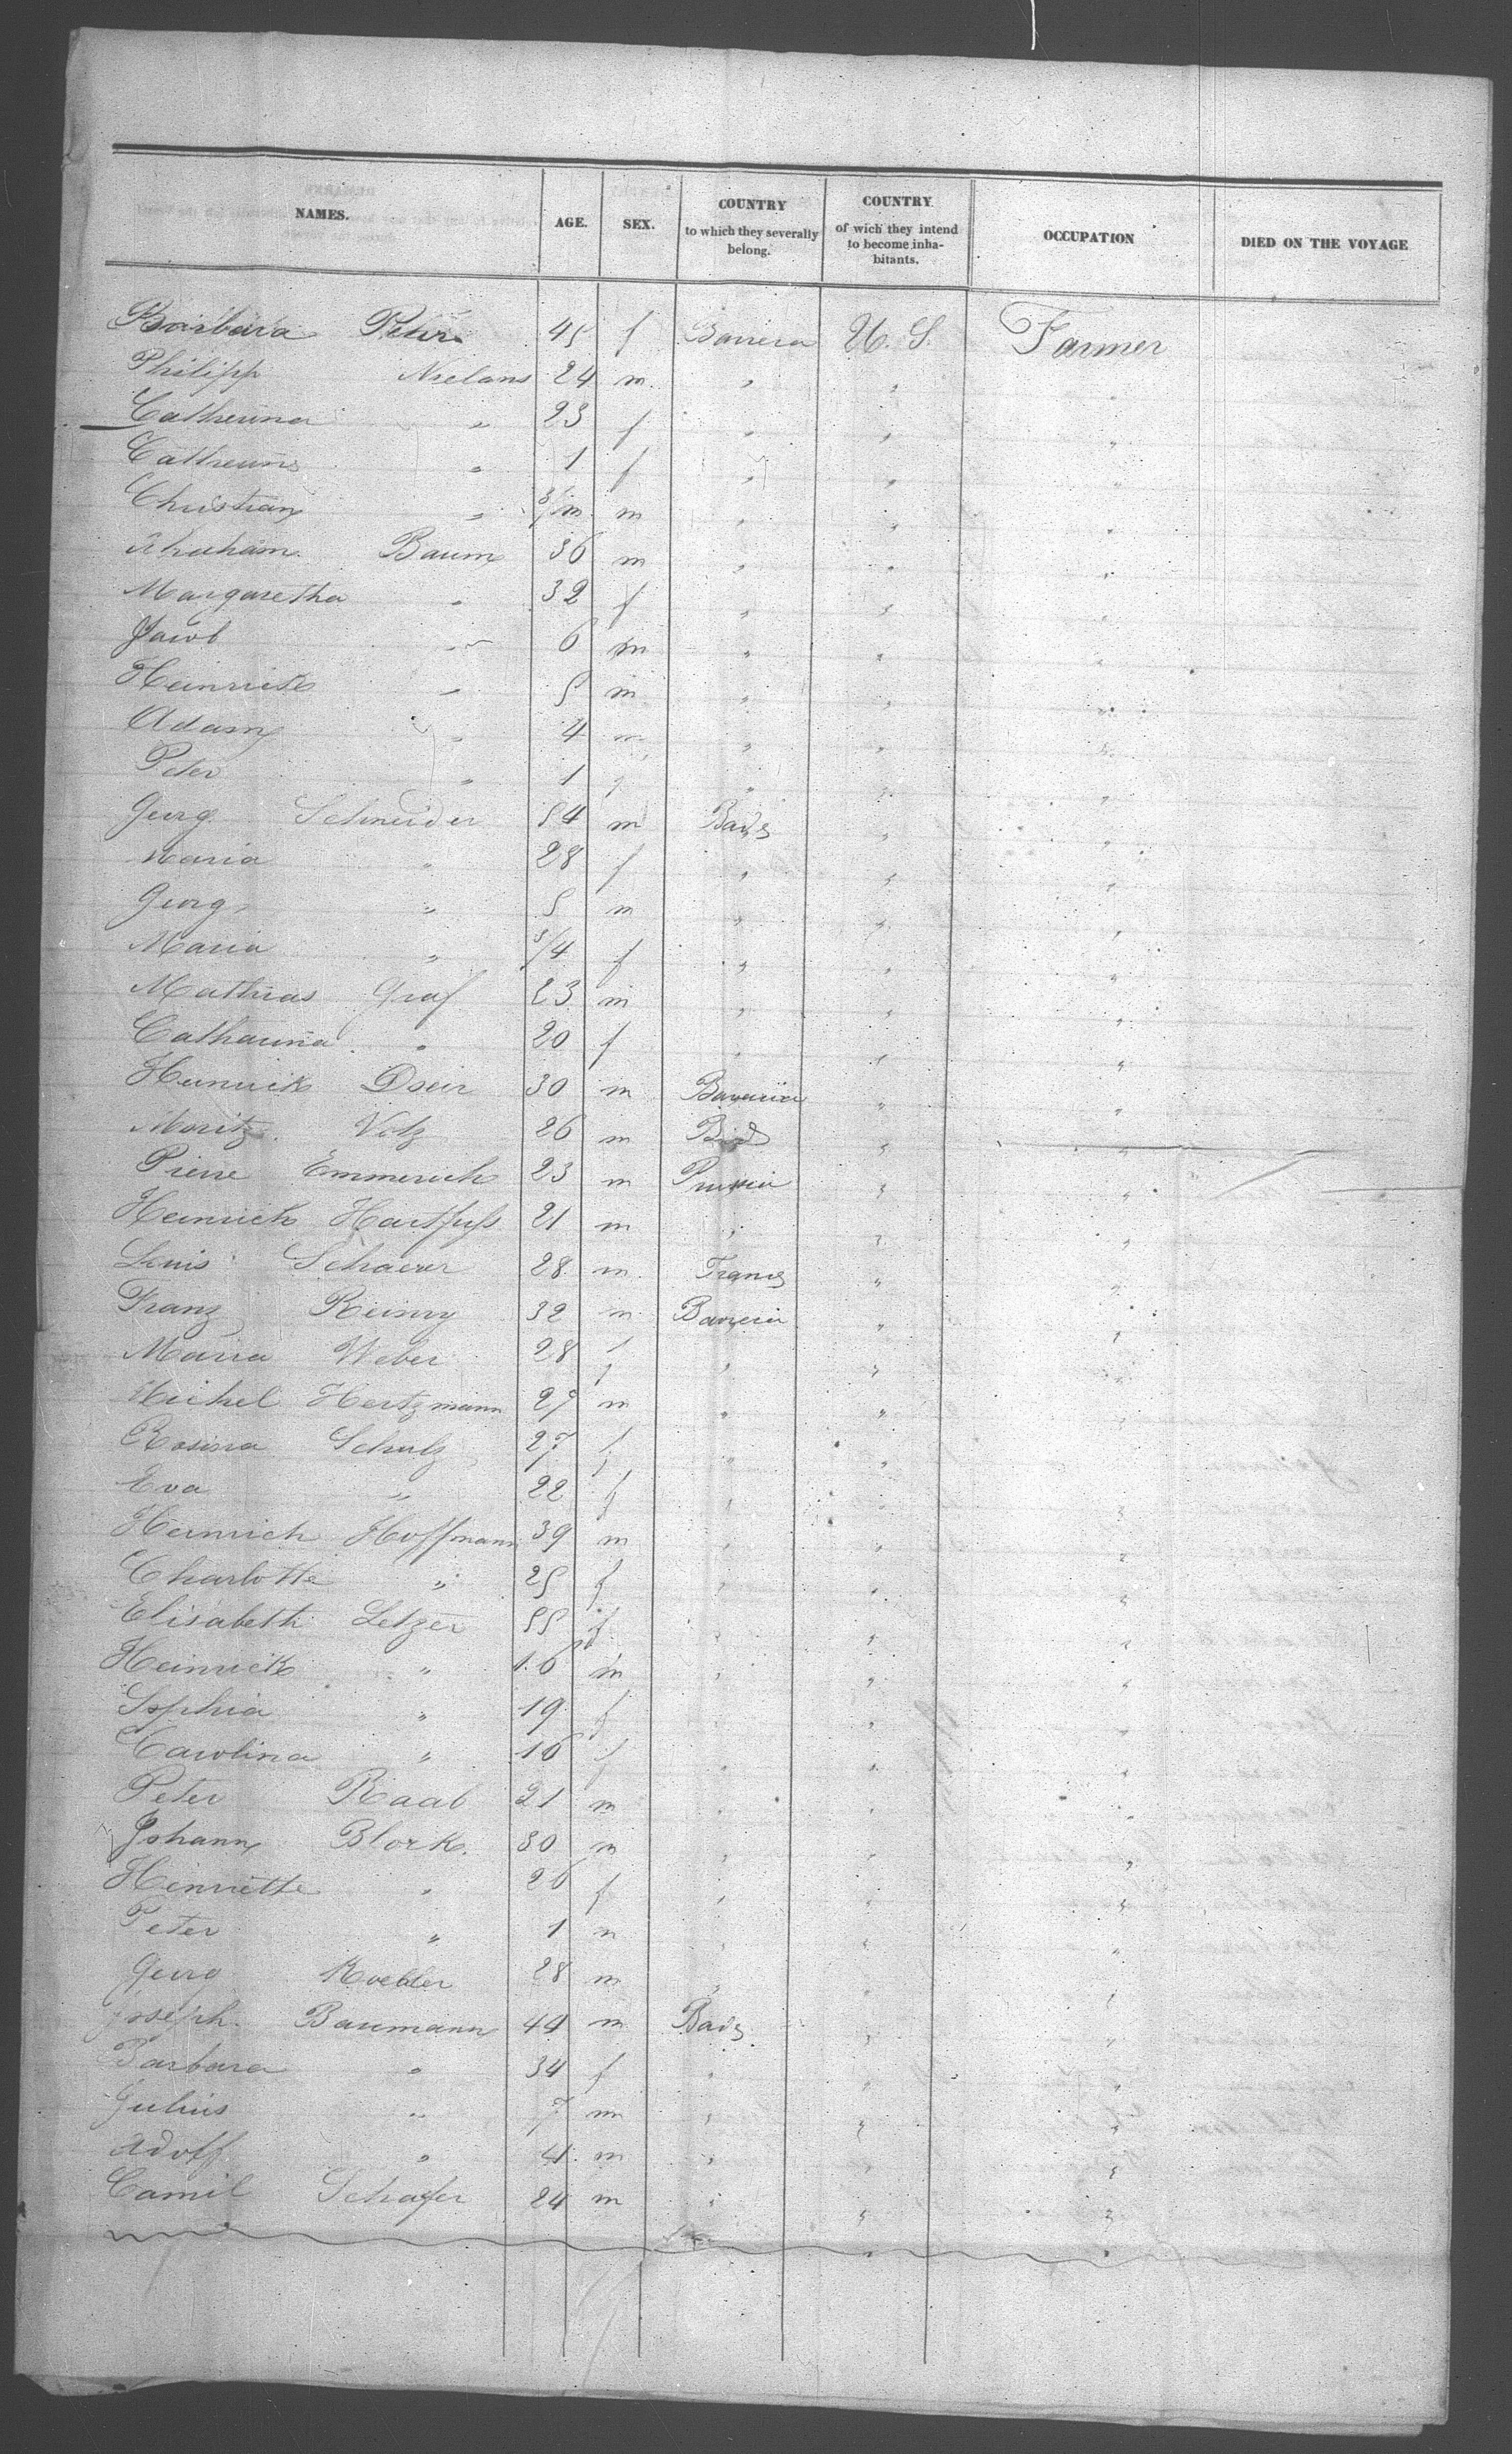 NAMES. AGE. SEX. COUNTRY to which they severally belong. COUNTRY of wich they intend to become inhabitants. OCCUPATION DIED ON THE VOYAGE
Barbara Peter 45 f Bavaria U. S. Farmer
Philipp 24 m " "
Catherina " 23 f " " "
Catherina " 1 f " " "
Christian " 3/m m " " "
Abraham Baum 36 m " " "
Margaretha " 32 f " " "
Jacob " 6 m " " "
Heinrich " 5 m " " "
Adam " 4 m " " "
Peter " 1 f " " "
Georg Schneider 54 m Bade " "
Maria " 28 f " " "
Georg " 5 m " " "
Maria " 3/4 f " " "
Mathias Graf 23 m " " "
Catharina " 20 f " " "
Heinrich 30 m Bavaria " "
Moritz Volz 26 m Bade " "
Pierre Emmerich 23 m Prussia " "
Heinrich Hartfuss 21 m " " "
Louis Schaerer 28 m France "
Franz 32 m Bavaria " "
Maria Weber 28 f " " "
Michel Hertzmann 27 m " "
Rosina Schulz 27 f " " "
Eva " 22 f " " "
Heinrich Hoffmann 39 m " " "
Charlotte " 25 f " " "
Elisabeth Letzer 55 f " " "
Heinrich " 16 m " " "
Sophia " 19 f " "
Carolina " 16 f " " "
Peter Raab 21 m " " "
Johann Block 30 m " " "
Henriette " 26 f " " "
Peter " 1 m " " "
Georg Koehler 28 m " " "
Joseph Baumann 44 m Bade " "
Barbara " 34 f " " "
Julius " 7 m " " "
Adolf " 4 m " " "
Camil Schafer 24 m " " "